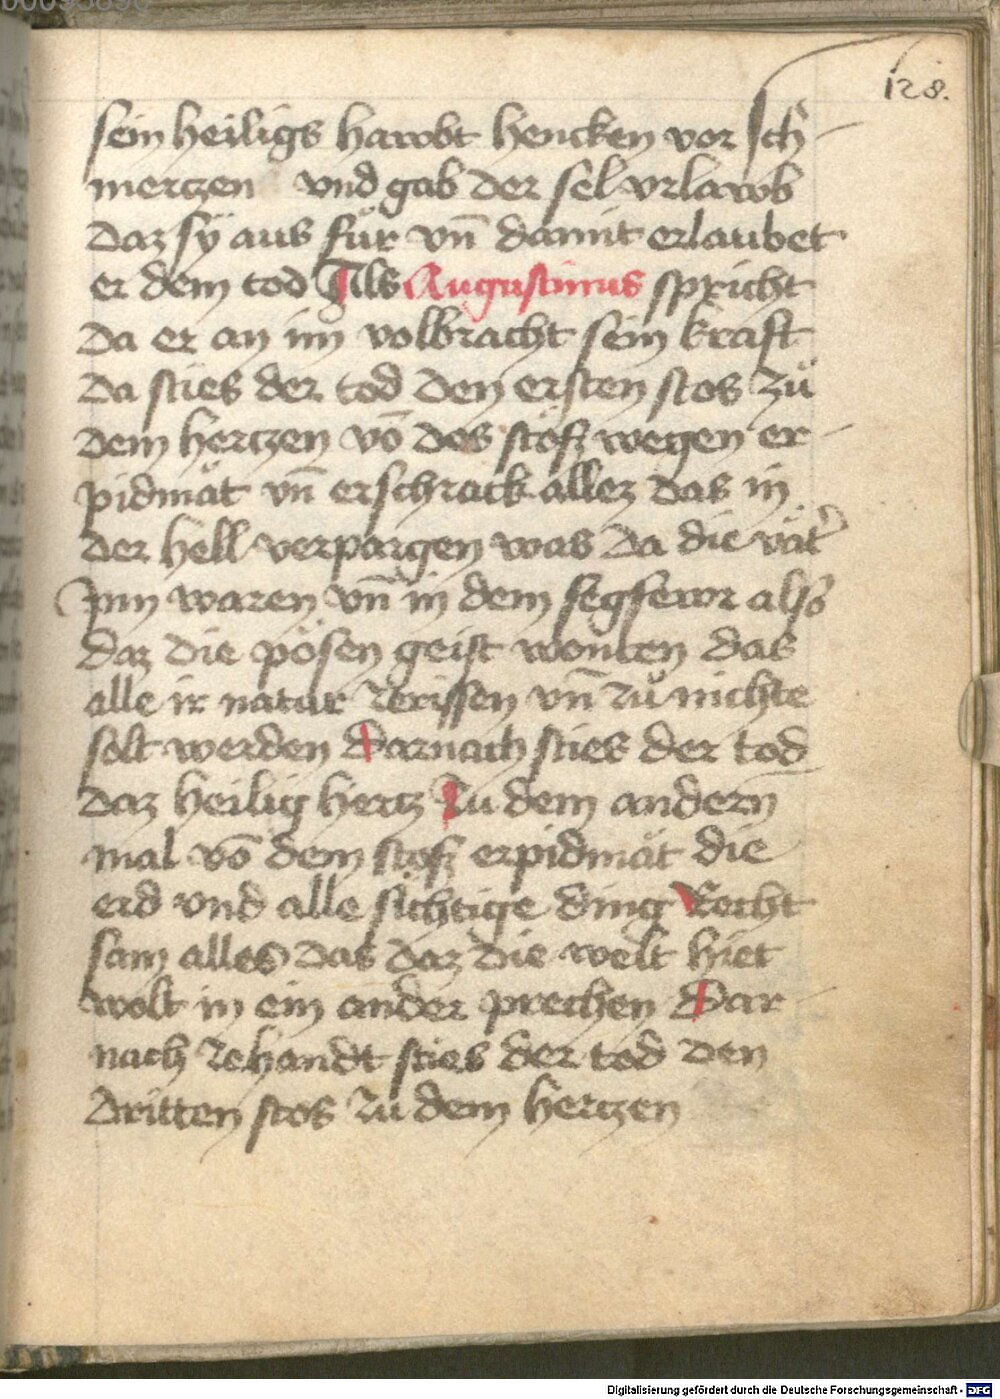 128.
sein heiligs hawbt hencken vor sch
mertzen vnd gab der sel vrlawb
daz sÿ aus fůr vn̄ damit erlaubet
er dem tod Als Augustinus spricht
da er an im volbracht sein kraft
da sties der tod den ersten stos zů
dem hertzen vō des stoß wegen er
pidmät vn̄ erschrack allez das in
der hell verpargen was da die vät
Inn waren vn̄ in dem fegfewr also
daz die pösen geist wonten das
alle ir natur zerissen vn̄ zů nichte
solt werden Darnach sties der tod
daz heilig hertz zu dem andern
mal vō dem stoß erpidmät die
erd vnd alle sichtige ding Recht
sam alles das daz die welt hiet
wolt in ein ander prechen Dar
nach zehandt sties der tod den
dritten stos zu dem hertzen
Digitalisierung gefördert durch die Deutsche Forschungsgemeinschaft - DFG